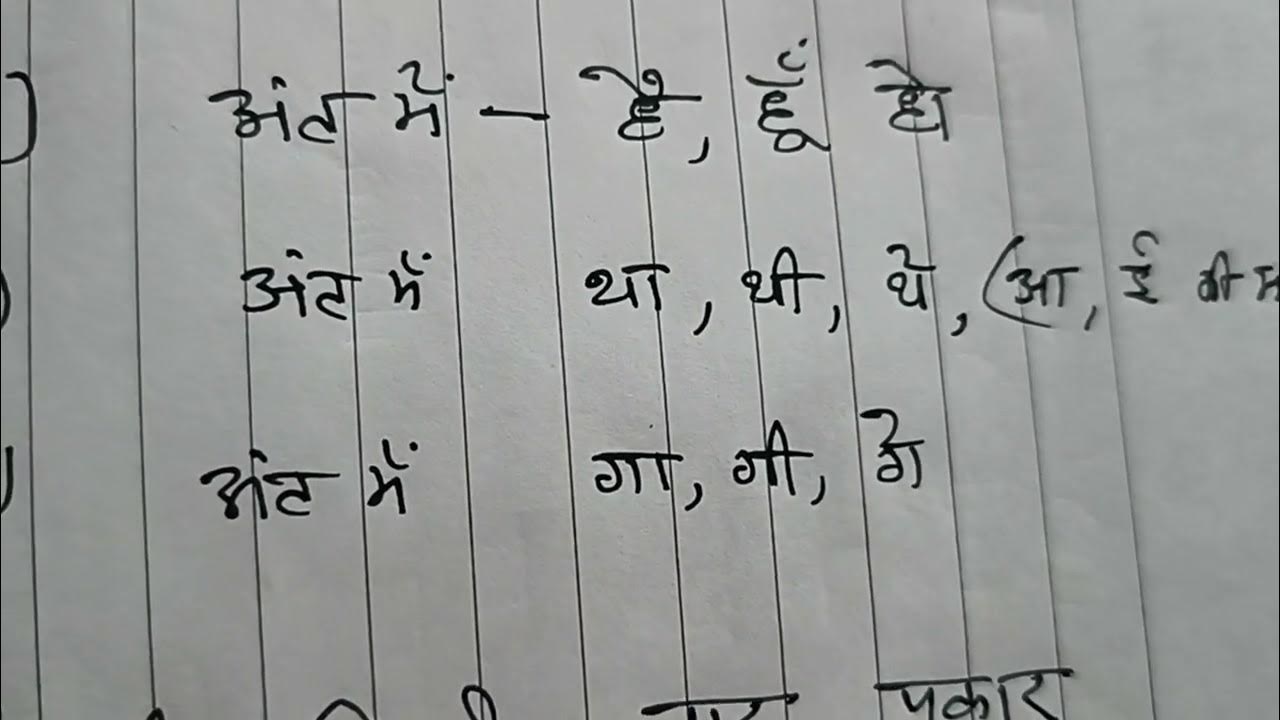 ) अंत में - है, हूँ हो
) अंत में था, थी, थे, (आ, ई की म
) अंत में गा, गी, गे
प्रकार